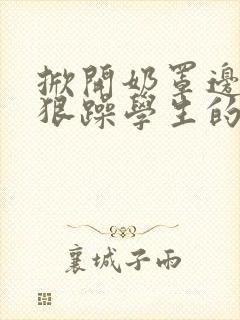 掀開奶罩邊
狠躁學生的
襄城子雨